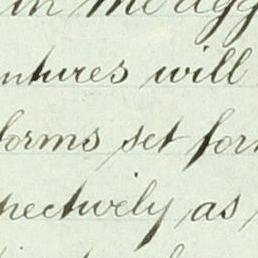 in the agg
ntures will
forms set for
pectively as